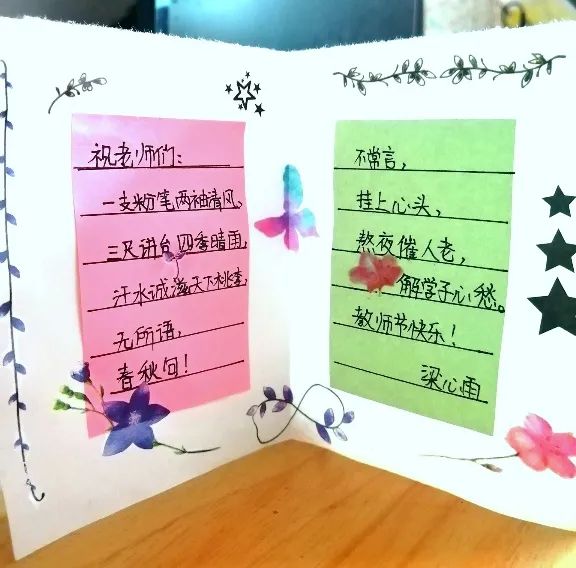 祝老师们：
一支粉笔两袖清风，
三尺讲台四季晴雨，
汗水诚滋天下桃李，
无所语，
春秋句！
不常言，
挂上心头，
熬夜催人老，
解学子心愁。
教师节快乐！
梁心雨